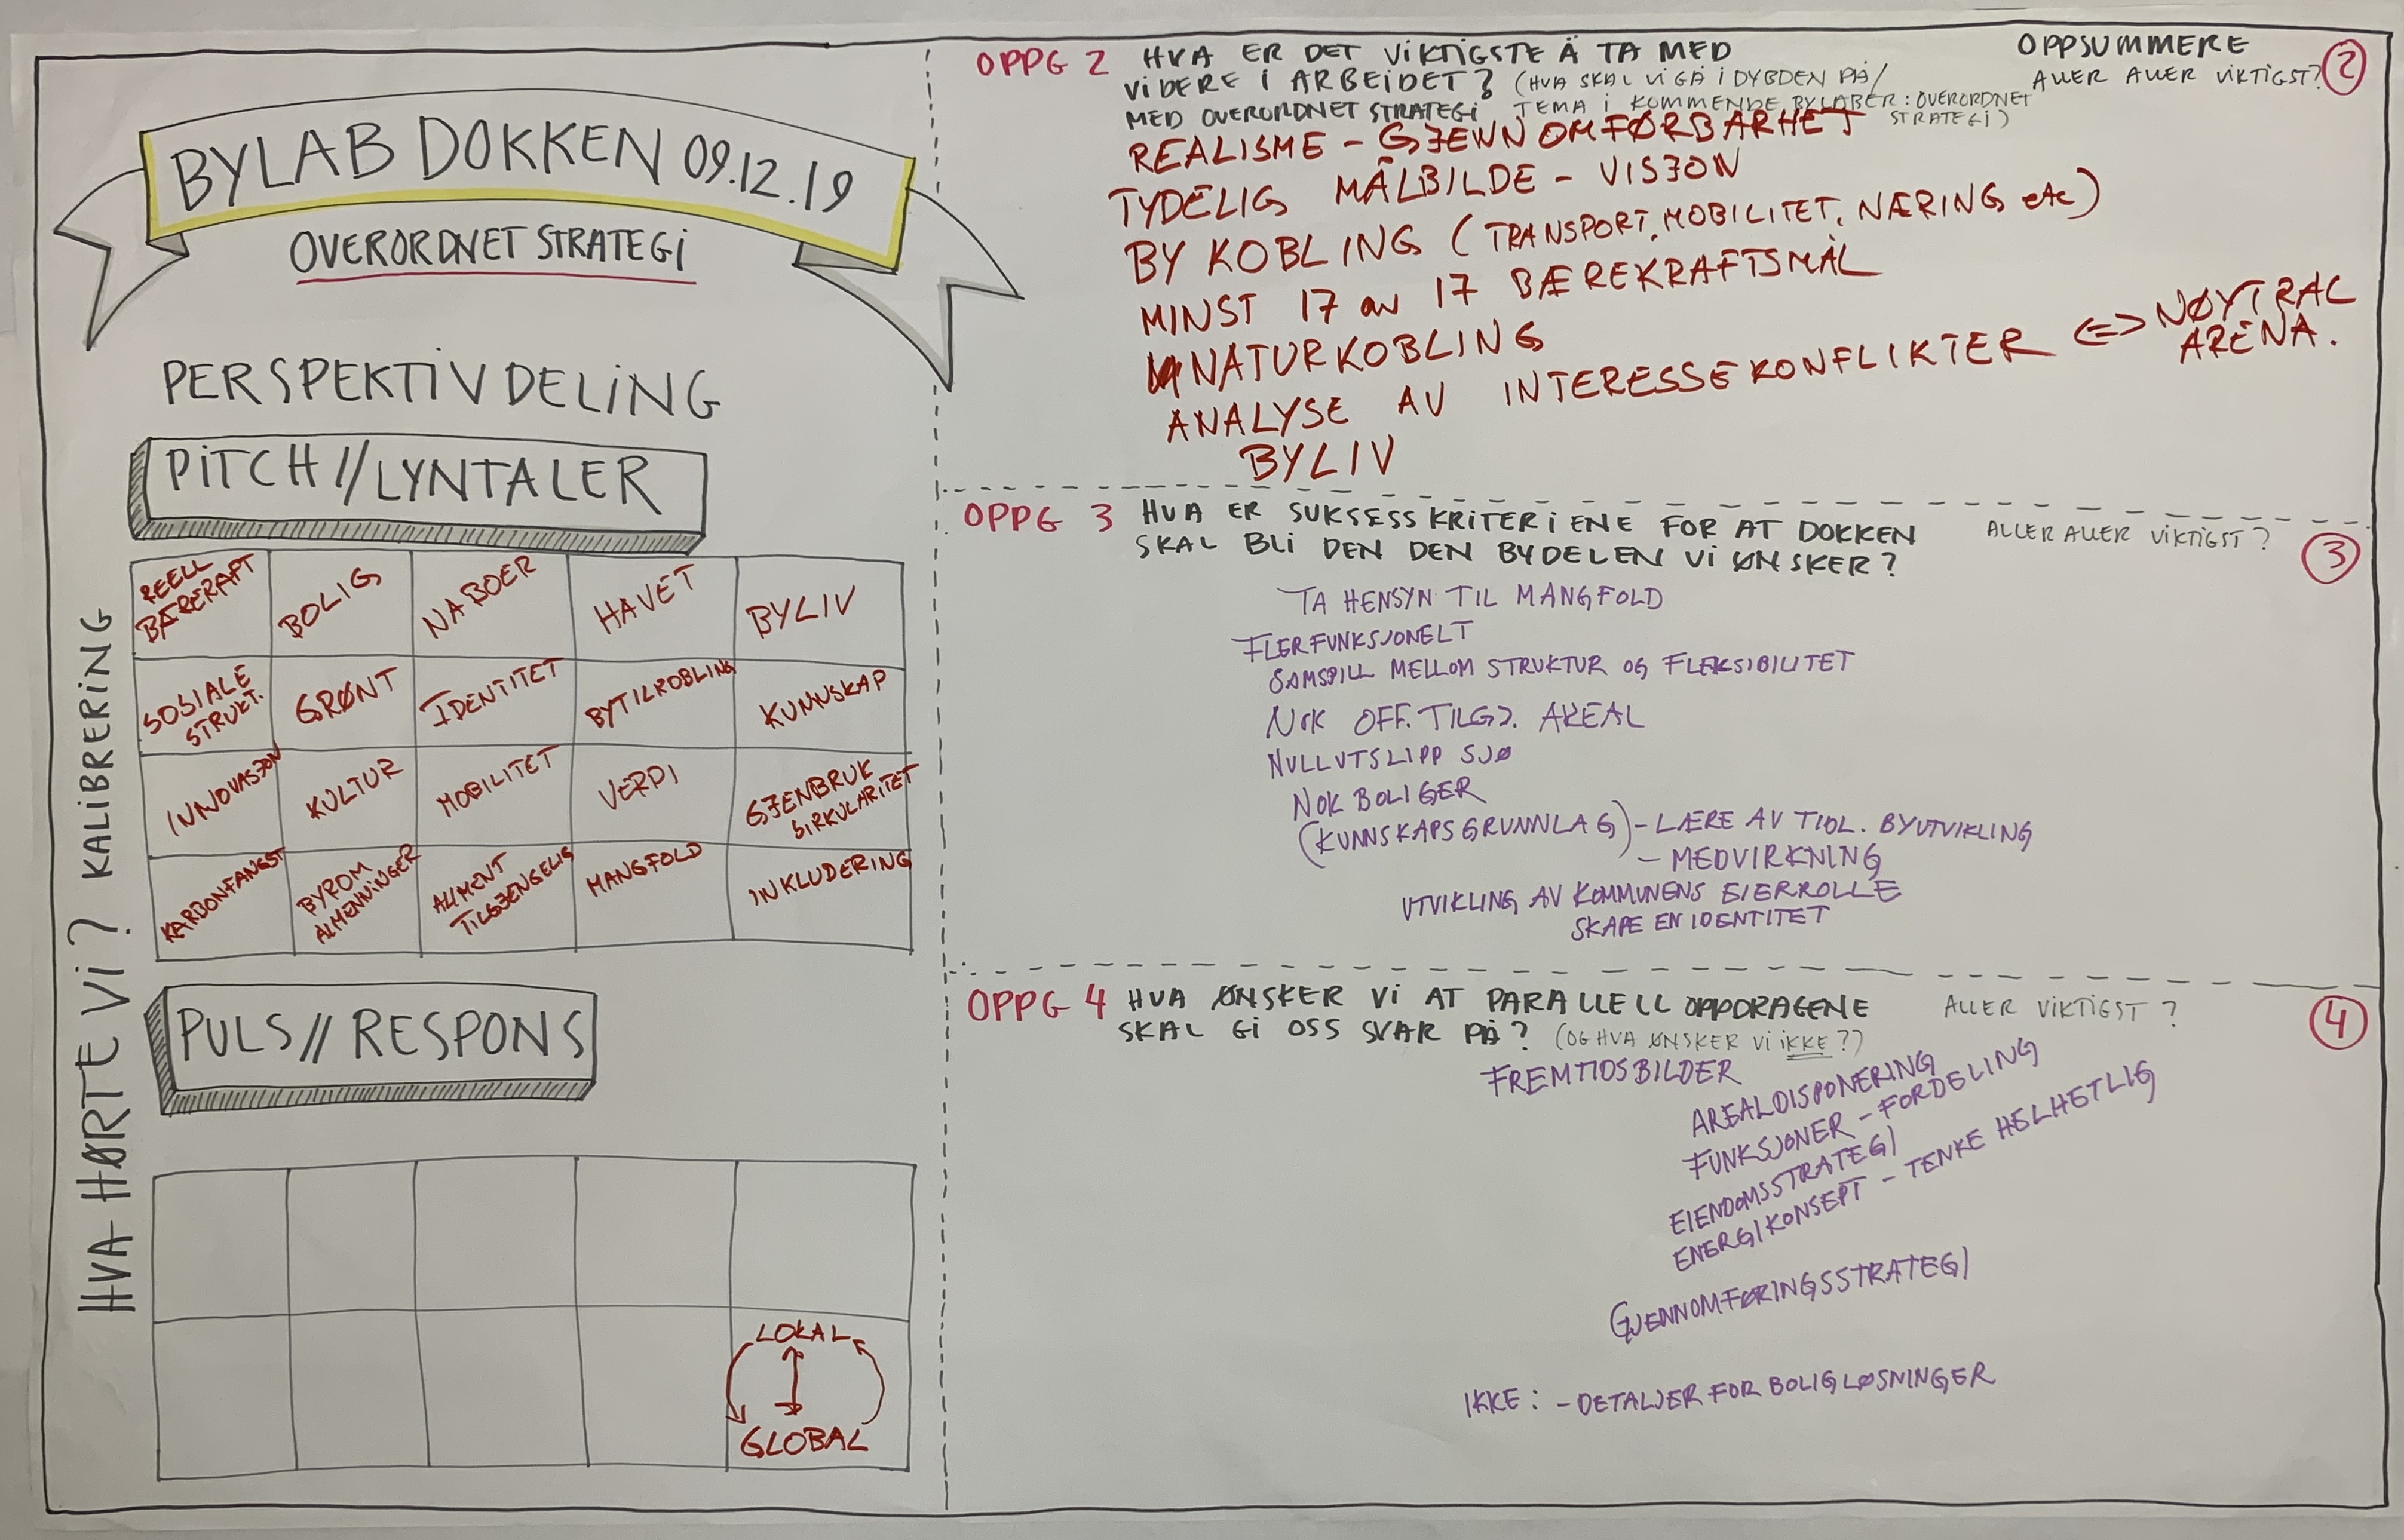 BYLAB DOKKEN 09.12.19
OVERORDNET STRATEGI
PERSPEKTIVDELING
PITCH // LYNTALER
HVA HØRTE VI? KALIBRERING
REELL
BÆREKRAFT
BOLIG
NABOER
HAVET
BYLIV
SOSIALE
STRUKT.
GRØNT
IDENTITET
BYTILKOBLING
KUNNSKAP
INNOVASJON
KULTUR
MOBILITET
VERDI
GJENBRUK
SIRKULARITET
KARBONFANGST
BYROM
ALMENNINGER
ALLMENT
TILGJENGELIG
MANGFOLD
INKLUDERING
PULS // RESPONS
LOKAL
GLOBAL
OPPG 2 HVA ER DET VIKTIGSTE Å TA MED
VIDERE I ARBEIDET? (HVA SKAL VI GÅ I DYBDEN PÅ/
MED OVERORDNET STRATEGI TEMA I KOMMENDE BYLABER: OVERORDNET
STRATEGI)
OPPSUMMERE
ALLER ALLER VIKTIGST? 2
REALISME - GJENNOMFØRBARHET
TYDELIG MÅLBILDE - VISJON
BY KOBLING (TRANSPORT, MOBILITET, NÆRING etc)
MINST 17 av 17 BÆREKRAFTSMÅL
NATURKOBLING
ANALYSE AV INTERESSEKONFLIKTER <=> NØYTRAL
ARENA.
BYLIV
OPPG 3 HVA ER SUKSESSKRITERIENE FOR AT DOKKEN
SKAL BLI DEN DEN BYDELEN VI ØNSKER?
ALLER ALLER VIKTIGST? 3
TA HENSYN TIL MANGFOLD
FLERFUNKSJONELT
SAMSPILL MELLOM STRUKTUR OG FLEKSIBILITET
NOK OFF. TILGJ. AREAL
NULLUTSLIPP SJØ
NOK BOLIGER
(KUNNSKAPSGRUNNLAG) - LÆRE AV TIDL. BYUTVIKLING
- MEDVIRKNING
UTVIKLING AV KOMMUNENS EIERROLLE
SKAPE EN IDENTITET
OPPG 4 HVA ØNSKER VI AT PARALLELLOPPDRAGENE
SKAL GI OSS SVAR PÅ? (OG HVA ØNSKER VI IKKE?)
ALLER VIKTIGST? 4
FREMTIDSBILDER
AREALDISPONERING
FUNKSJONER - FORDELING
EIENDOMSSTRATEGI
ENERGIKONSEPT - TENKE HELHETLIG
GJENNOMFØRINGSSTRATEGI
IKKE: - DETALJER FOR BOLIGLØSNINGER